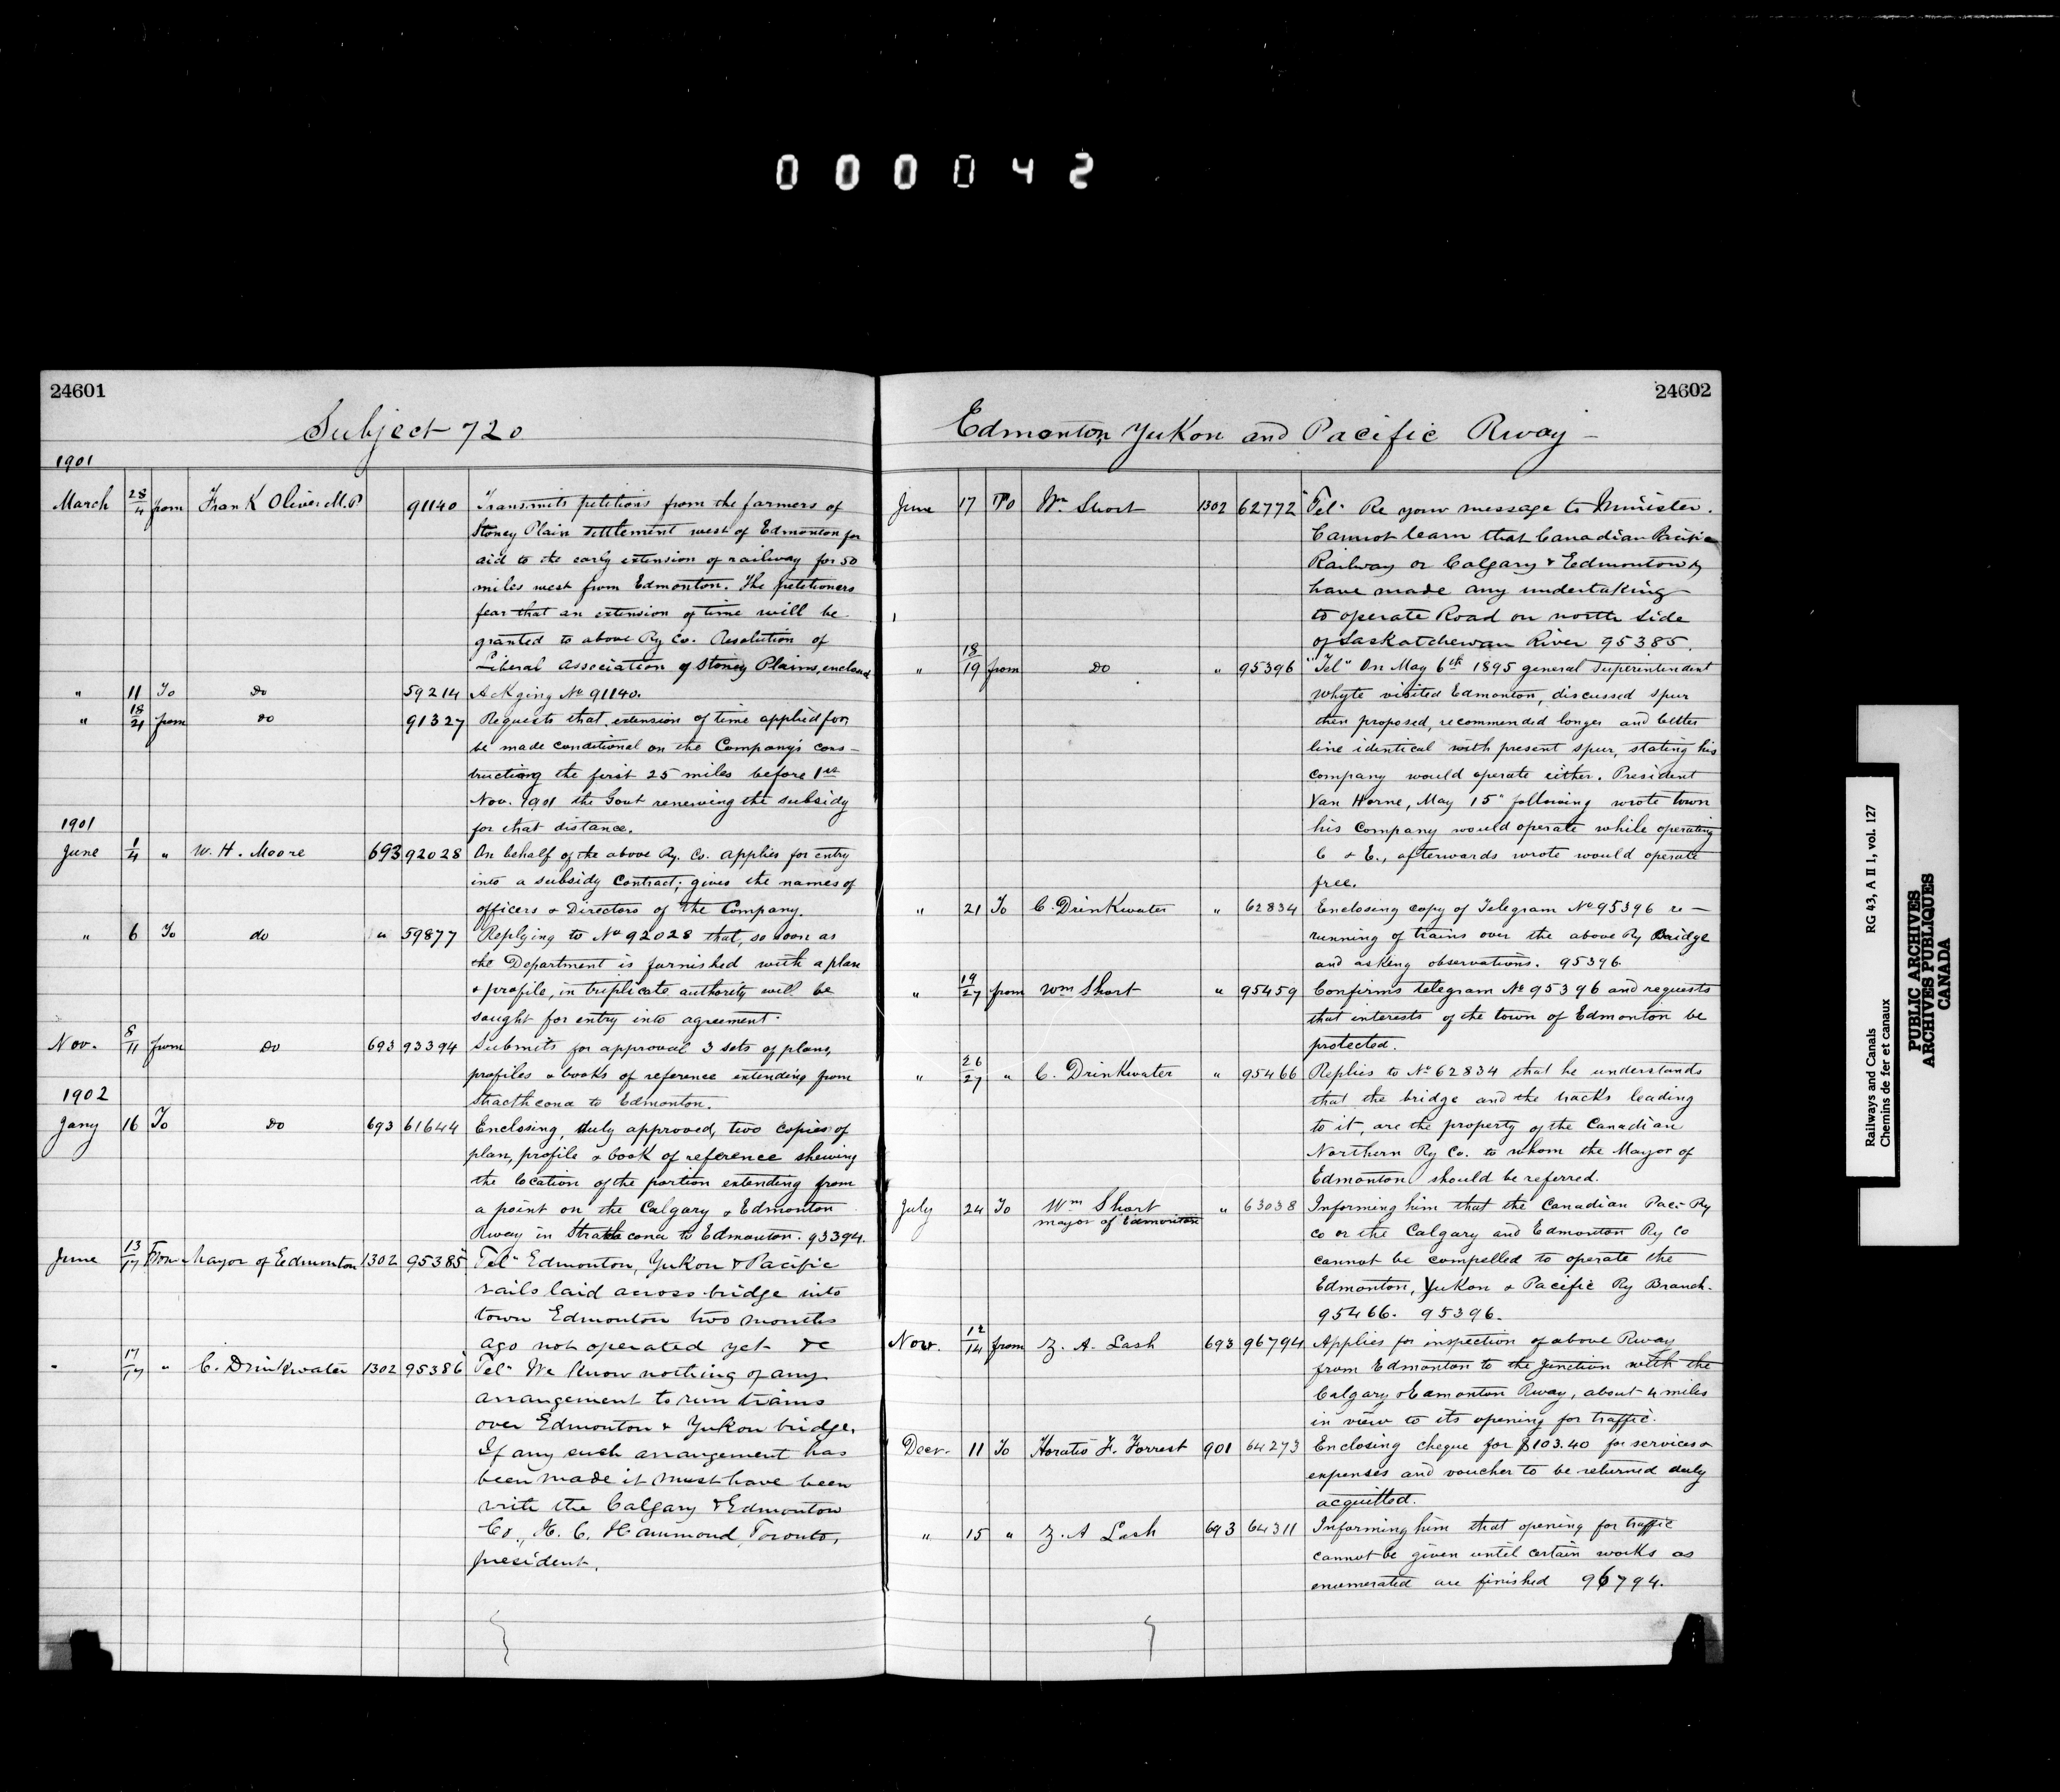 000042
24601
Subject 720
1901
March 28/4 from Frank Oliver M.P 91140 Transmits petitions from the farmers of
Stoney Plain settlement west of Edmonton for
aid to the early extension of railway for 50
miles west from Edmonton. The petitioners
fear that an extension of time will be
granted to above Ry Co. Resolution of
Liberal Association of Stoney Plains, enclosed
" 11 To do 59214 Ackging No 91140.
" 18/21 from do 91327 Requests that extension of time applied for,
be made conditional on the Company's cons-
tructiong the first 25 miles before 1st
Nov. 1901 the Govt renewing the subsidy
for that distance.
1901
June 1/4 " W. H. Moore 693 92028 On behalf of the above Ry. Co. applies for entry
into a subsidy Contract; gives the names of
officers & Directors of the Company.
" 6 To do " 59877 Replying to No 92028 that, so soon as
the Department is furnished with a plan
& profile, in triplicate authority will be
sought for entry into agreement.
Nov. 8/11 from do 693 93394 Submits for approval 3 sets of plans,
profiles & books of reference extending from
Stracthcona to Edmonton.
1902
Jany 16 To do 693 61644 Enclosing, duly approved, two copies of
plan, profile & book of reference shewing
the location of the portion extending from
a point on the Calgary & Edmonton
Rway in Strathcona to Edmonton. 93394.
June 13/17 From Mayor of Edmonton 1302 95385 "Tel" Edmonton, Yukon & Pacific
rails laid across bridge into
town Edmonton two months
ago not operated yet &c
" 17/17 " C. Drinkwater 1302 95386 "Tel" We know nothing of any
arrangement to run trains
over Edmonton & Yukon bridge.
If any such arrangement has
been made it must have been
with the Calgary & Edmonton
Co., H. C. Hammond, Toronto,
president.
24602
Edmonton, Yukon and Pacific Rway -
June 17 To Wm Short 1302 62772 "Tel" Re your message to Minister.
Cannot learn that Canadian Pacific
Railway or Calgary & Edmonton Ry
have made any undertaking
to operate Road on north side
of Saskatchewan River 95385.
" 18/19 from do " 95396 "Tel" On May 6th 1895 general Superintendent
Whyte visited Edmonton, discussed spur
then proposed, recommended longer and better
line identical with present spur, stating his
company would operate either. President
Van Horne, May 15" following wrote town
his Company would operate while operating
C & E., afterwards wrote would operate
free.
" 21 To C. Drinkwater " 62834 Enclosing copy of Telegram No 95396 re -
running of trains over the above Ry Bridge
and asking observations. 95396.
" 19/27 from Wm Short " 95459 Confirms telegram No 95396 and requests
that interests of the town of Edmonton be
protected.
" 26/27 " C. Drinkwater " 95466 Replies to No 62834 that he understands
that the bridge and the tracks leading
to it, are the property of the Canadian
Northern Ry Co. to whom the Mayor of
Edmonton should be referred.
July 24 To Wm Short " 63038 Informing him that the Canadian Pac- Ry
mayor of Edmonton
Co or the Calgary and Edmonton Ry Co
cannot be compelled to operate the
Edmonton, Yukon & Pacific Ry Branch.
95466. 95396.
Nov. 12/14 from Z. A. Lash 693 96794 Applies for inspection of above Rway
from Edmonton to the Junction with the
Calgary & Edmonton Rway, about 4 miles
in view to its opening for traffic.
Decr. 11 To Horatio F. Forrest 901 64273 Enclosing cheque for $103.40 for services &
expenses and voucher to be returned duly
acquitted.
" 15 " Z. A Lash 693 64311 Informing him that opening for traffic
cannot be given until certain works as
enumerated are finished 96794.
Railways and Canals RG 43, A II 1, vol. 127
Chemins de fer et canaux
PUBLIC ARCHIVES
ARCHIVES PUBLIQUES
CANADA